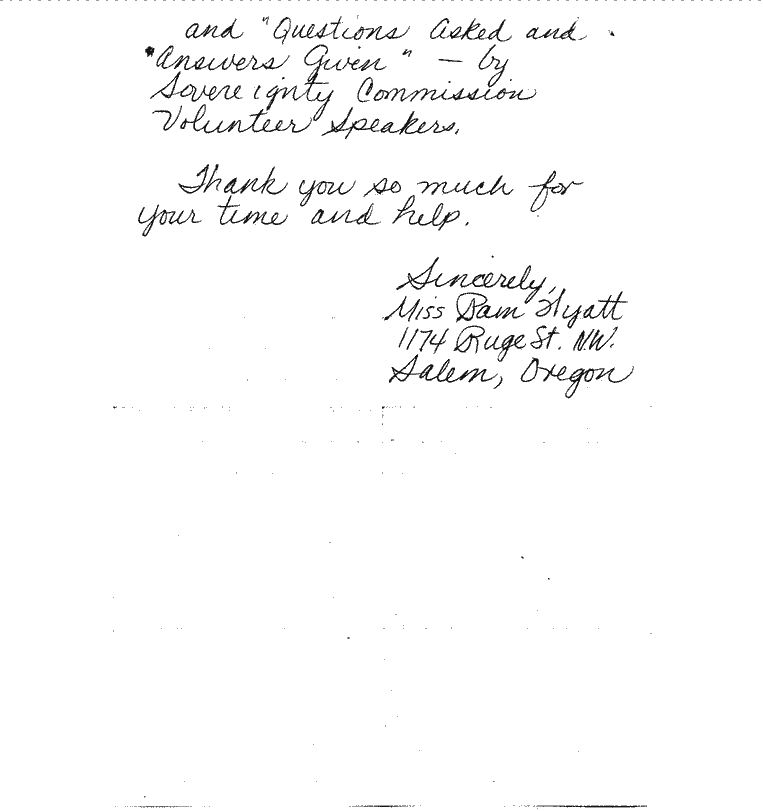 and "Questions Asked and
"Answers Given" — by
Sovereignty Commission
Volunteer Speakers.
Thank you so much for
your time and help.
Sincerely,
Miss Pam Hyatt
1174 Ruge St. N.W.
Salem, Oregon